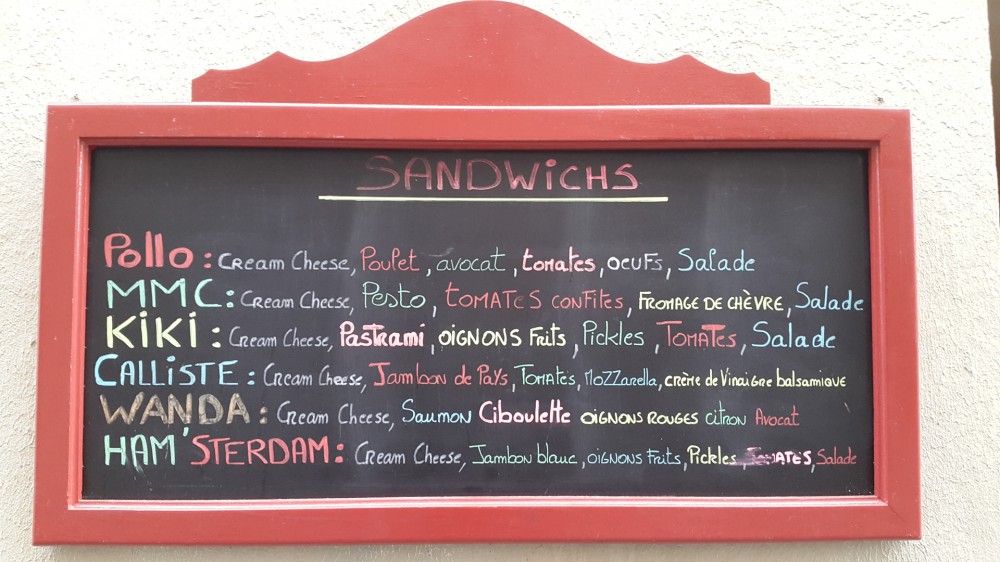 SANDWiCHS
Pollo : Cream Cheese, Poulet, avocat, tomates, oeuFs, Salade
MMC : Cream Cheese, Pesto, TOMATES CONFITES, FROMAGE DE CHÈVRE, Salade
KiKi : Cream Cheese, Pastrami, OIGNONS Frits, Pickles, TOMATES, Salade
CALLiSTE : Cream Cheese, Jambon de Pays, TOMATES, MOZZarella, crème de Vinaigre balsamique
WANDA : Cream Cheese, Saumon Ciboulette OIGNONS ROUGES citron Avocat
HAM'STERDAM : Cream Cheese, Jambon blanc, OIGNONS Frits, Pickles, TOMATES, Salade